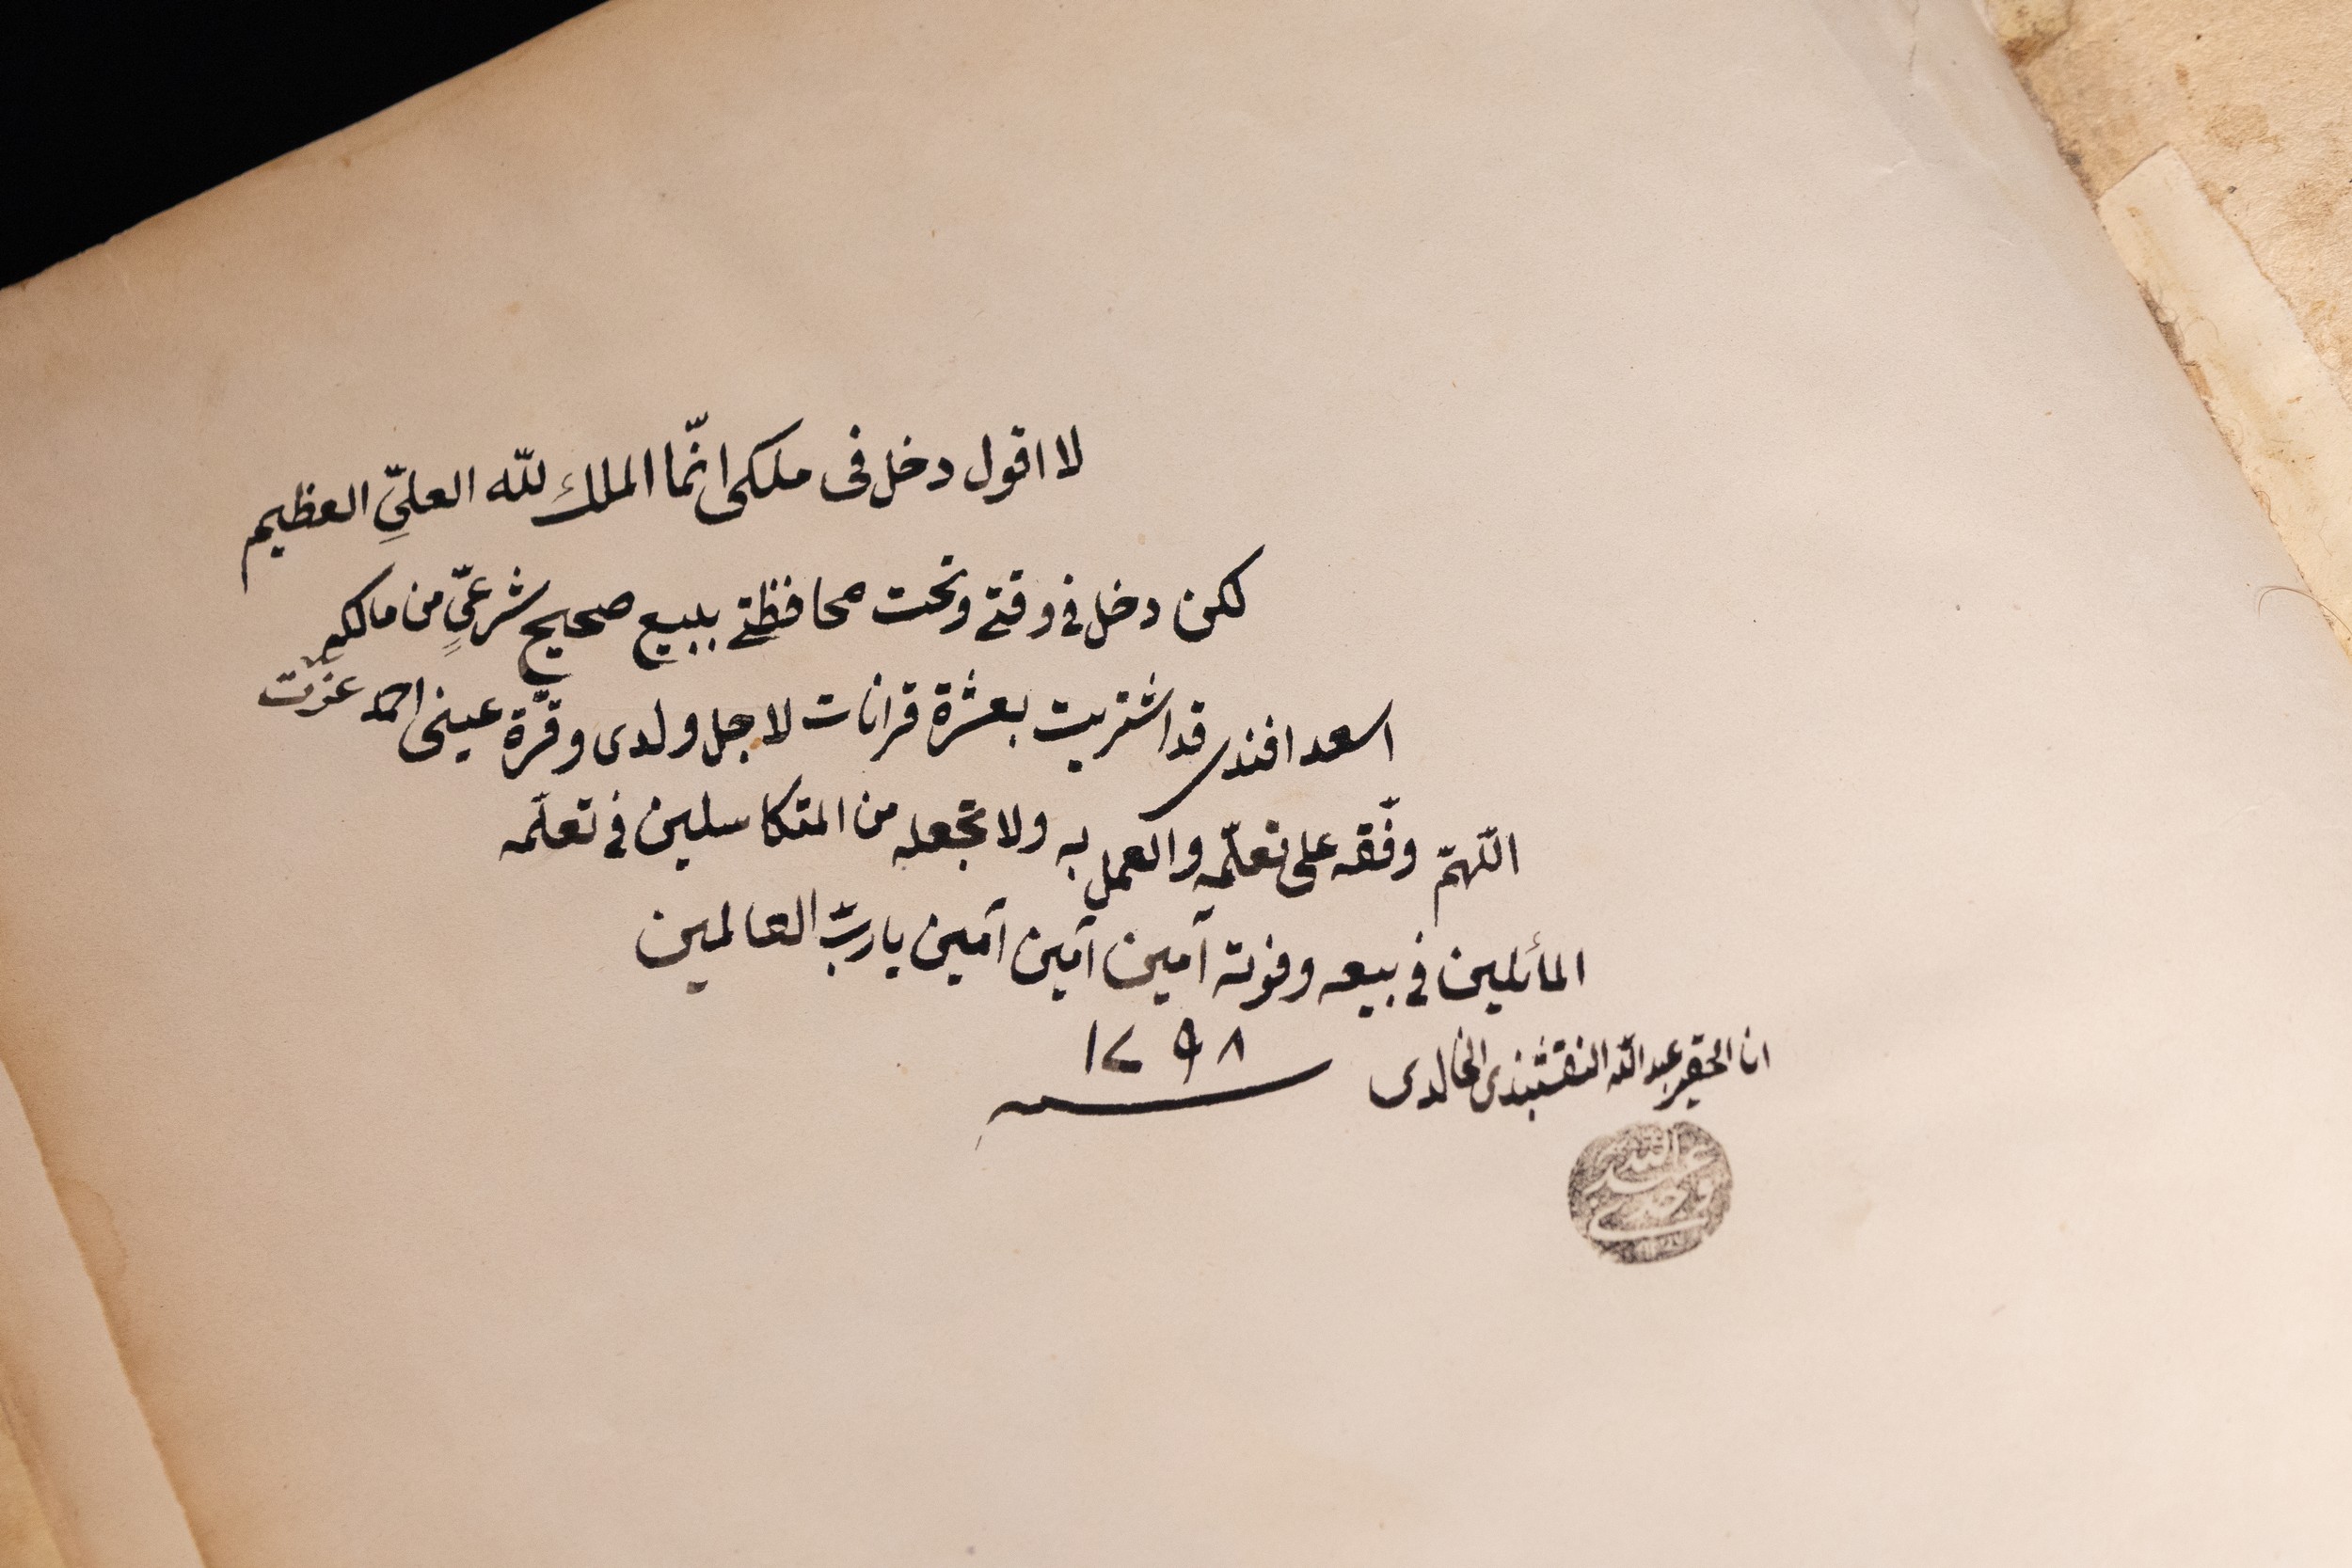 لا اقول دخل فى ملكى انّما الملك للّه العلىّ العظيم
لكن دخل فى وقتى وتحت محافظتى ببيع صحيح شرعىٍّ من مالكه
اسعد افندى قد اشتريت بعشرة قرانات لاجل ولدى وقرّة عينى احمد عزّت
اللّهمّ وفّقه على تعلّمه والعمل به ولا تجعله من المتكاسلين فى تعلّمه
المأئلين فى بيعه وفوته آمين آمين آمين يا ربّ العالمين
انا الحقير عبد اللّه النقشبندى الخالدى
سنه ١٢٩٨
عبد الله